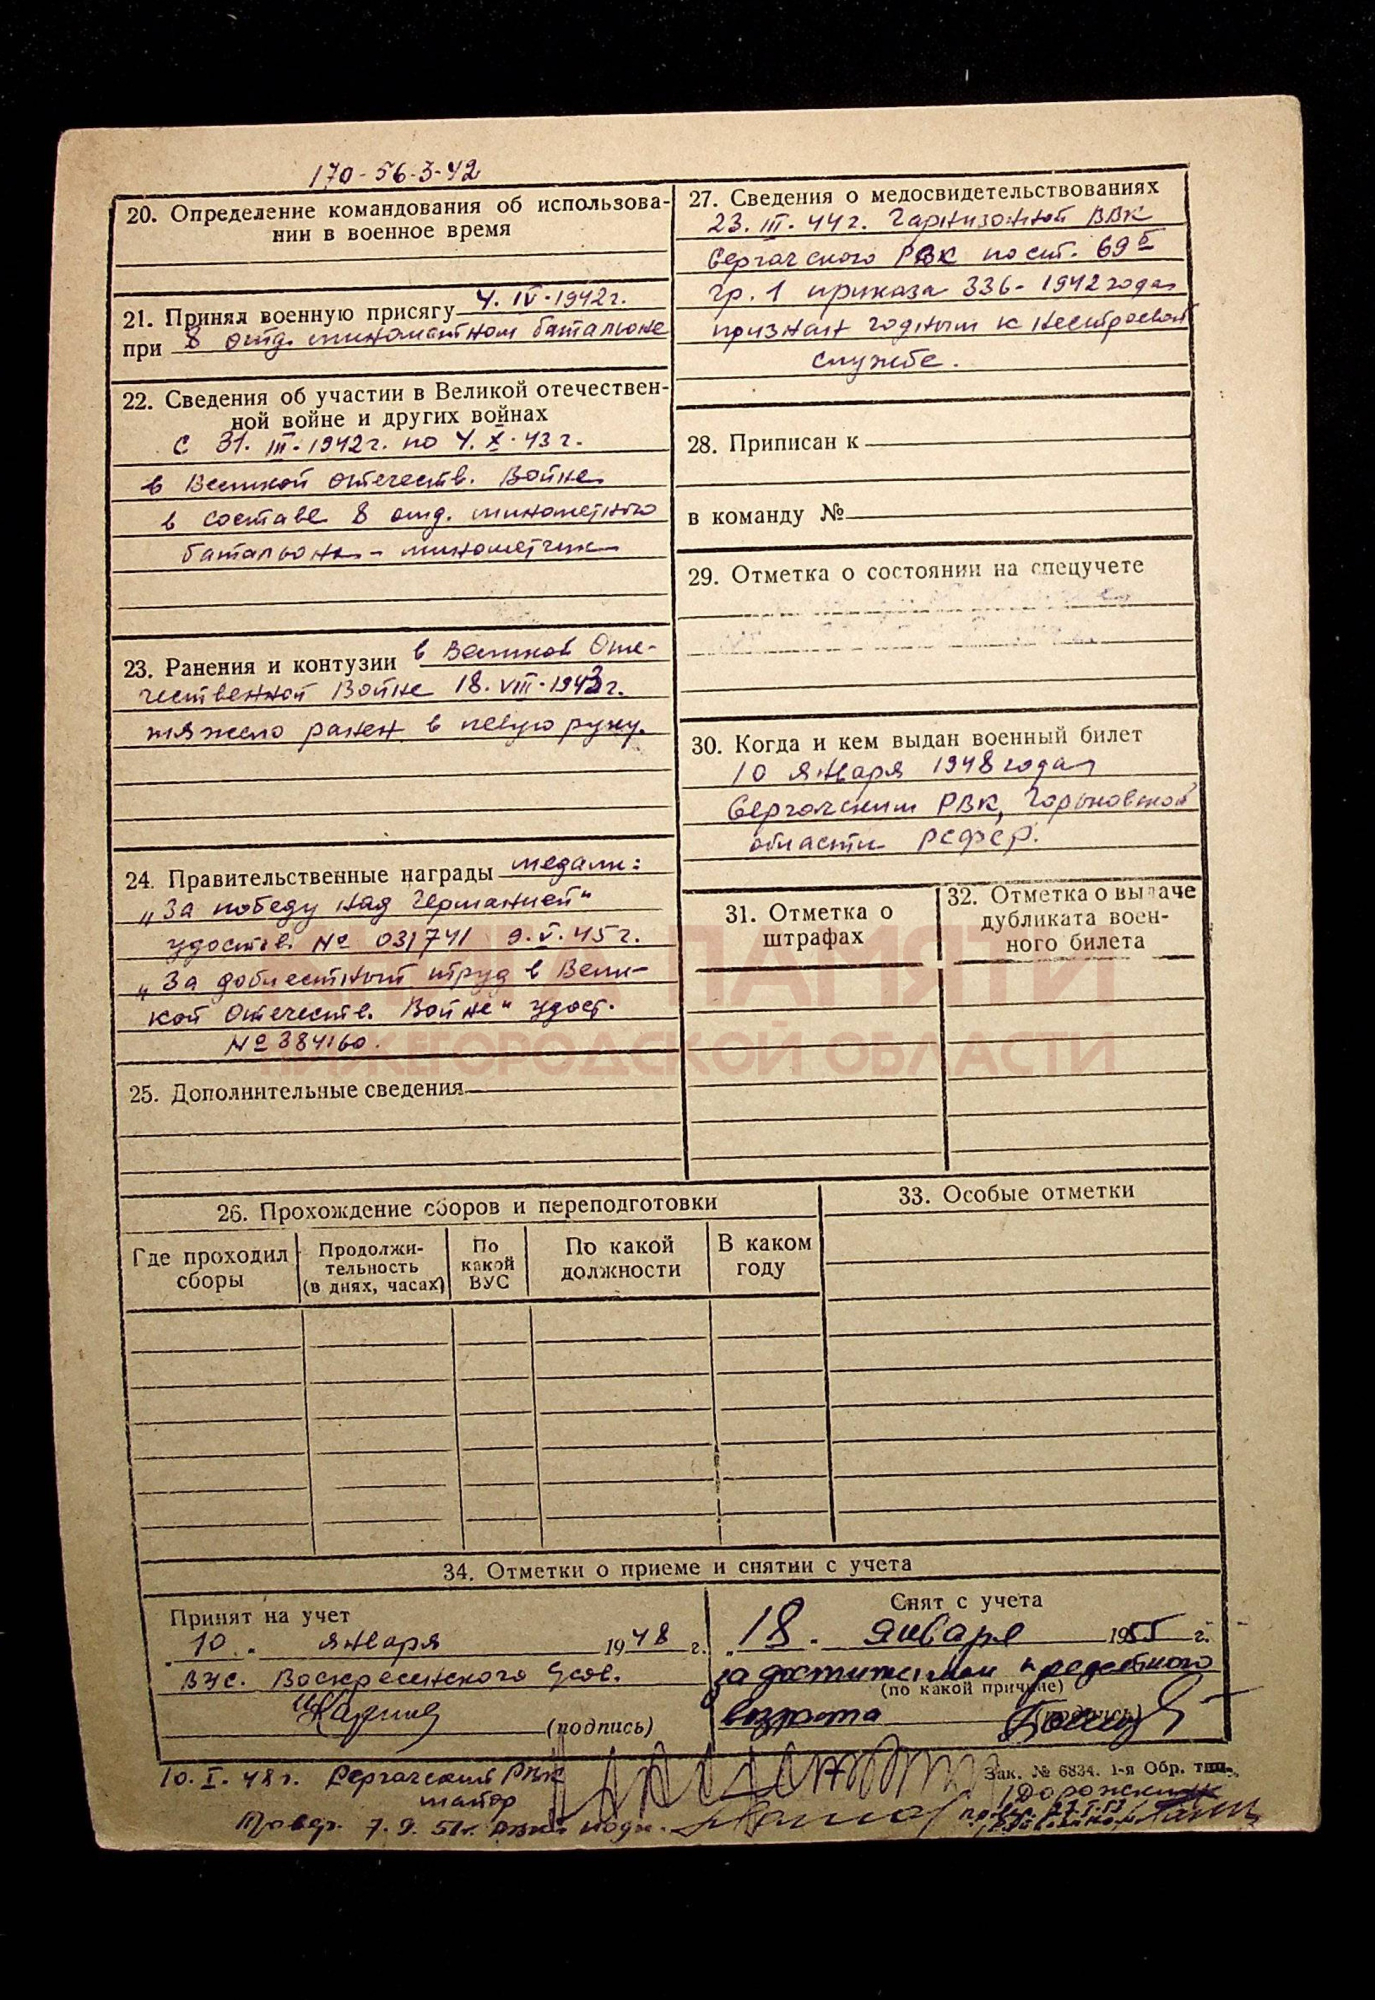 170-56-3-42
20. Определение командования об использова-
нии в военное время
21. Принял военную присягу 4. IV. 1942г.
при 8 отд. минометном батальоне
22. Сведения об участии в Великой отечествен-
ной войне и других войнах
с 31. III. 1942г. по 4. X. 43г.
в Великой отечеств. Войне
в составе 8 отд. минометного
батальона - минометчик
23. Ранения и контузии в Великой Оте-
чественной Войне 18. VIII. 1943г.
тяжело ранен в левую руку.
24. Правительственные награды медали:
„За победу над Германией"
удостов. № 031741 9. V. 45г.
„За доблестный труд в Вели-
кой Отечеств. Войне" удост.
№ 384160.
25. Дополнительные сведения
27. Сведения о медосвидетельствованиях
23. III. 44г. Гарнизонной ВВК
Сергачского РВК по ст. 69б
гр. 1 приказа 336-1942 года
признан годным к нестроевой
службе.
28. Приписан к
в команду №
29. Отметка о состоянии на спецучете
30. Когда и кем выдан военный билет
10 января 1948 года
Сергачским РВК, Горьковской
области РСФСР.
31. Отметка о
штрафах
32. Отметка о выдаче
дубликата воен-
ного билета
КНИГА ПАМЯТИ
НИЖЕГОРОДСКОЙ ОБЛАСТИ
26. Прохождение сборов и переподготовки
Где проходил
сборы
Продолжи-
тельность
(в днях, часах)
По
какой
ВУС
По какой
должности
В каком
году
33. Особые отметки
34. Отметки о приеме и снятии с учета
Принят на учет
„10." января 1948 г.
ВУС. Воскресенского
(подпись)
Снят с учета
„18. января 1955 г.
за достижением предельного
(по какой причине)
возраста (подпись)
10. I. 48г. Сергачский РВК
майор
Зак. № 6834. 1-я Обр. тип.
Провер. 7. 9. 51г.